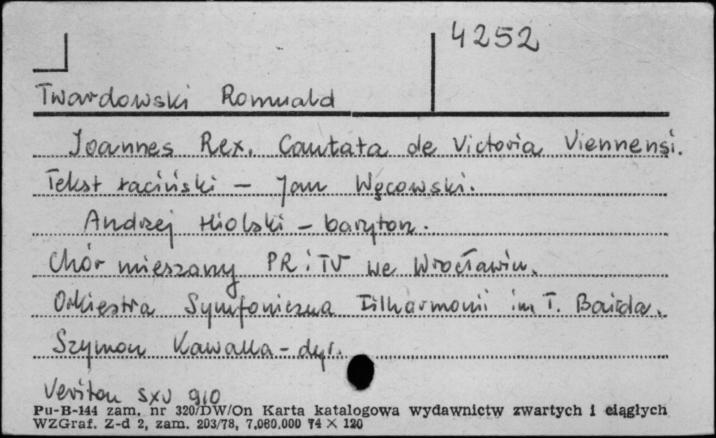 4252
Twardowski Romuald
Joannes Rex. Cantata de Victoria Viennensi.
Tekst łaciński – Jan Węcowski.
Andrzej Hiolski – baryton.
Chór mieszany PR i TV we Wrocławiu.
Orkiestra Symfoniczna Filharmonii im T. Bairda.
Szymon Kawalla – dyr.
Veriton SXV 910
Pu-B-144 zam. nr 320/DW/On Karta katalogowa wydawnictw zwartych i ciągłych
WZGraf. Z-d 2, zam. 203/78, 7.060.000 74 × 120